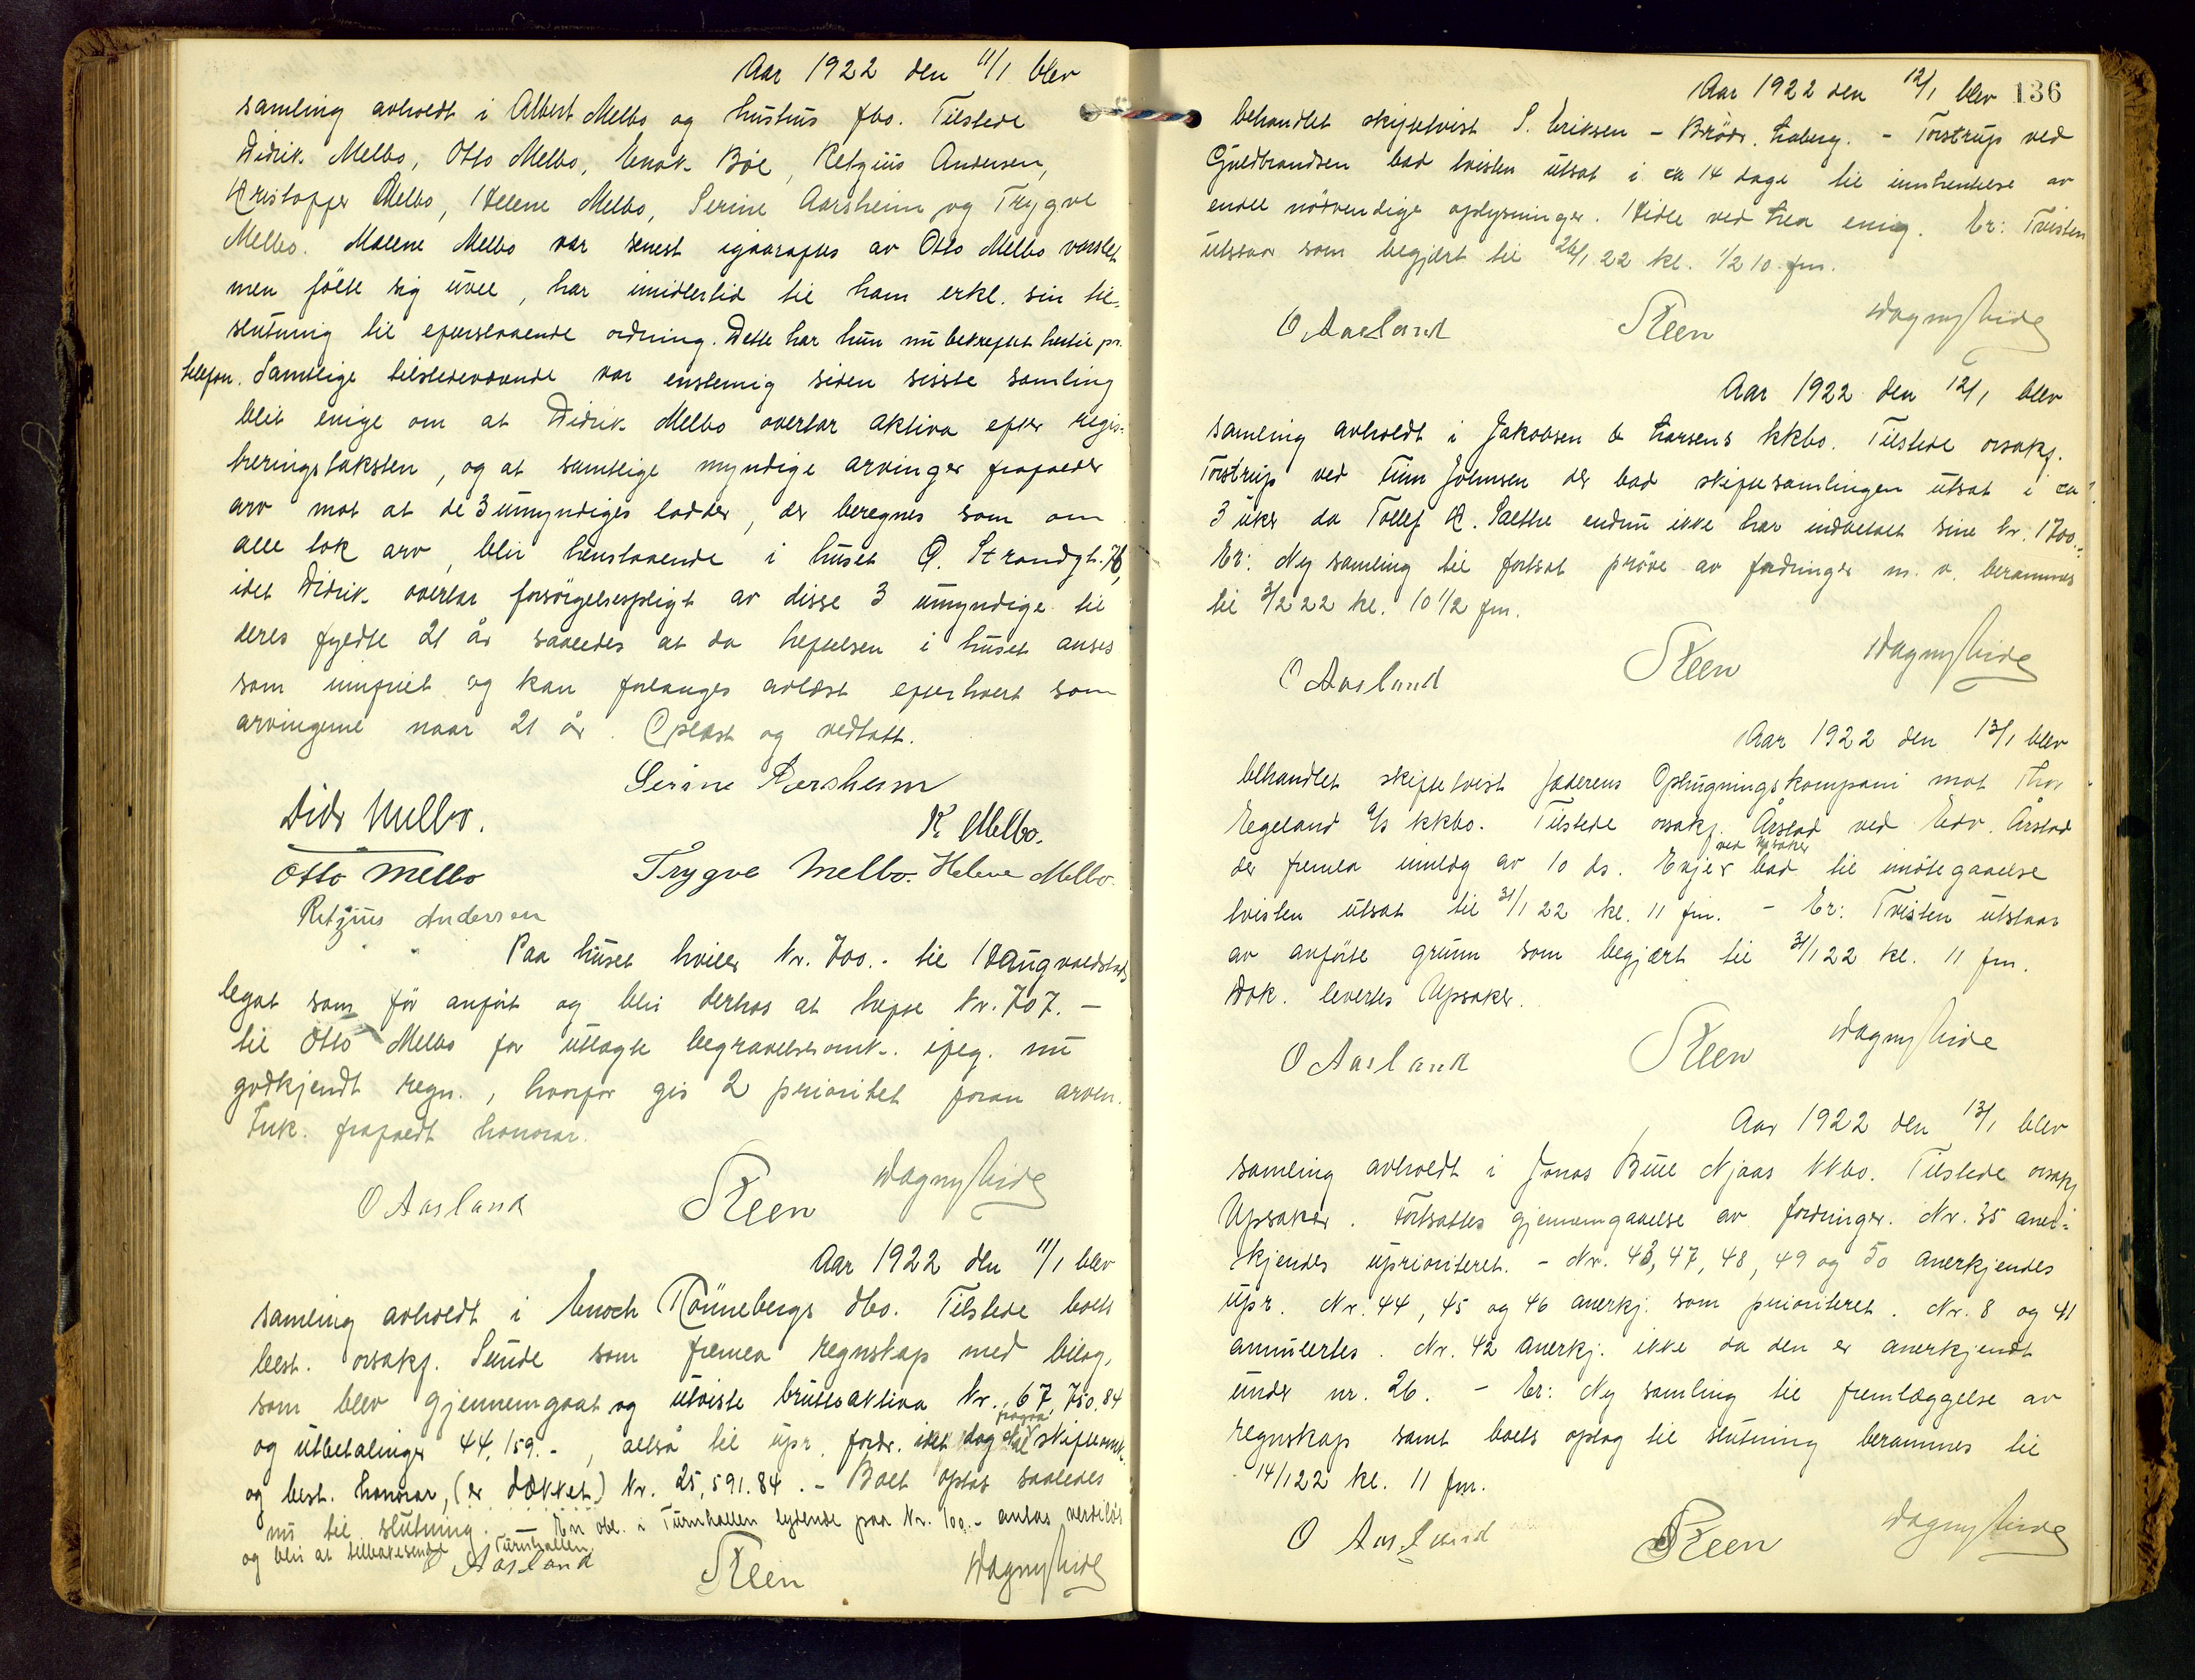 Aar 1922 den 11/1 blev
samling avholdt i Albert Melbo og hustrus fbo. Tilstede
Didrik Melbo, Otto Melbo, Enok Böe, Retzius Andersen,
Kristoffer Melbo, Helene Melbo, Serine Aarsheim og Trygve
Melbo. Malene Melbo var senest igaaraftes av Otto Melbo varslet
men fölte sig uvel, har imidlertid til ham erkl. sin til-
slutning til efterstaaende ordning. Dette har hun nu bekreftet hertil pr.
telefon. Samtlige tilstedeværende var enstemig siden sisste samling
blit enige om at Didrik Melbo overtar aktiva efter regis-
treringstaksten, og at samtlige myndige arvinger frafalder
arv mot at de 3 umyndiges lodder, der beregnes som om
alle tok arv, blir henstaaende i huset Ö. Strandgt. 76,
idet Didrik overtar forsörgelsespligt av disse 3 umyndige til
deres fyldte 21 år saaledes at da heftelsen i huset anses
som innfriet og kan forlanges avlæst efterhvert som
arvingerne naar 21 år. Oplæst og vedtatt.
Serine Aarsheim
Didr Melbo. K. Melbo.
Otto Melbo Trygve Melbo. Helene Melbo.
Retzius Andersen
Paa huset hviler kr. 700.- til Haugvaldstads
legat som för anfört og blir derhos at hefte kr. 707.-
til Otto Melbo for utlagte begravelsesomk. ifölg. nu
godkjendt regn., hvorfor gis 2 prioritet foran arven.
Ink. frafaldt honorar.
O Aasland Steen Dagny Eide
Aar 1922 den 11/1 blev
samling avholdt i Enoch Rönnebergs dbo. Tilstede boets
best. orsakf. Sunde som fremla regnskap med bilag,
som blev gjennemgaat og utviste bruttoaktiva kr. 67,750.84
og utbetalinger 44,159.-, altså til upr. fordr. idet skifteomk.
og best. honorar, (er dækket) kr. 25,591.84.- Boet optas saaledes
nu til slutning. En obl. i Turnhallen lydende paa kr. 100.- antas verdilös
og blir at tilbakesende Turnhallen.
O Aasland Steen Dagny Eide
136
Aar 1922 den 12/1 blev
behandlet skiftetvist S. Eriksen - Brödr. Laberg. - Torstrup ved
Guldbrandsen bad tvisten utsat i ca 14 dage til innhentelse av
endel nödvendige oplysninger. Hidle ved Lea enig. Er: Tvisten
utstaar som begjært til 26/1 22 kl. 1/2 10 fm.
O Aasland Steen Dagny Eide
Aar 1922 den 12/1 blev
samling avholdt i Jakobsen & Larsens kkbo. Tilstede orsakf.
Torstrup ved Finn Johnsen der bad skiftesamlingen utsat i ca
3 uker da Tollef K. Sælthe endnu ikke har indbetalt sine kr. 1700.-
Er: Ny samling til fortsat pröve av fordringer m. v. berammes
til 3/2 22 kl. 10 1/2 fm.
O Aasland Steen Dagny Eide
Aar 1922 den 13/1 blev
behandlet skiftetvist Jæderens Ophugningskompani mot Thor
Egeland A/S kkbo. Tilstede orsakf. Årstad ved Edv. Årstad
der fremla innlæg av 10 ds. Erjer ved Upsaker bad til imötegaaelse
tvisten utsat til 31/1 22 kl. 11 fm. - Er: Tvisten utstaar
av anförte grunn som begjært til 31/1 22 kl. 11 fm.
Dok. levertes Upsaker.
O Aasland Steen Dagny Eide
Aar 1922 den 13/1 blev
samling avholdt i Jonas Bull Njaas kkbo. Tilstede orsakf
Upsaker. Fortsattes gjennemgaaelse av fordringer. Nr. 35 aner-
kjendes uprioriteret. - Nr. 43, 47, 48, 49 og 50 anerkjendes
upr. Nr. 44, 45 og 46 anerkj. som prioriteret. Nr. 8 og 41
annulertes. Nr. 42 anerkj. ikke da den er anerkjendt
under nr. 26. - Er: Ny samling til fremlæggelse av
regnskap samt boets optag til slutning berammes til
14/1 22 kl. 11 fm.
O Aasland Steen Dagny Eide